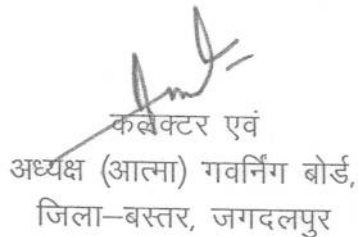 कलेक्टर एवं
अध्यक्ष (आत्मा) गवर्निंग बोर्ड,
जिला–बस्तर, जगदलपुर